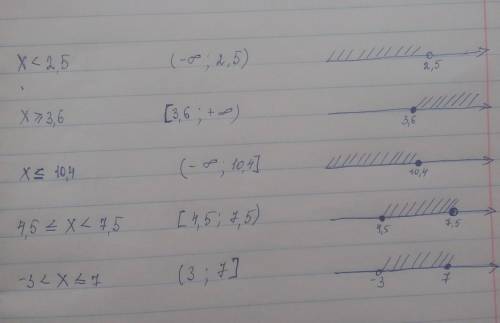 x < 2,5 (-∞ ; 2,5) 2,5
x ⩾ 3,6 [3,6 ; +∞) 3,6
x ≤ 10,4 (-∞ ; 10,4] 10,4
4,5 ≤ x < 7,5 [4,5 ; 7,5) 4,5 7,5
-3 < x ≤ 7 (3 ; 7] -3 7